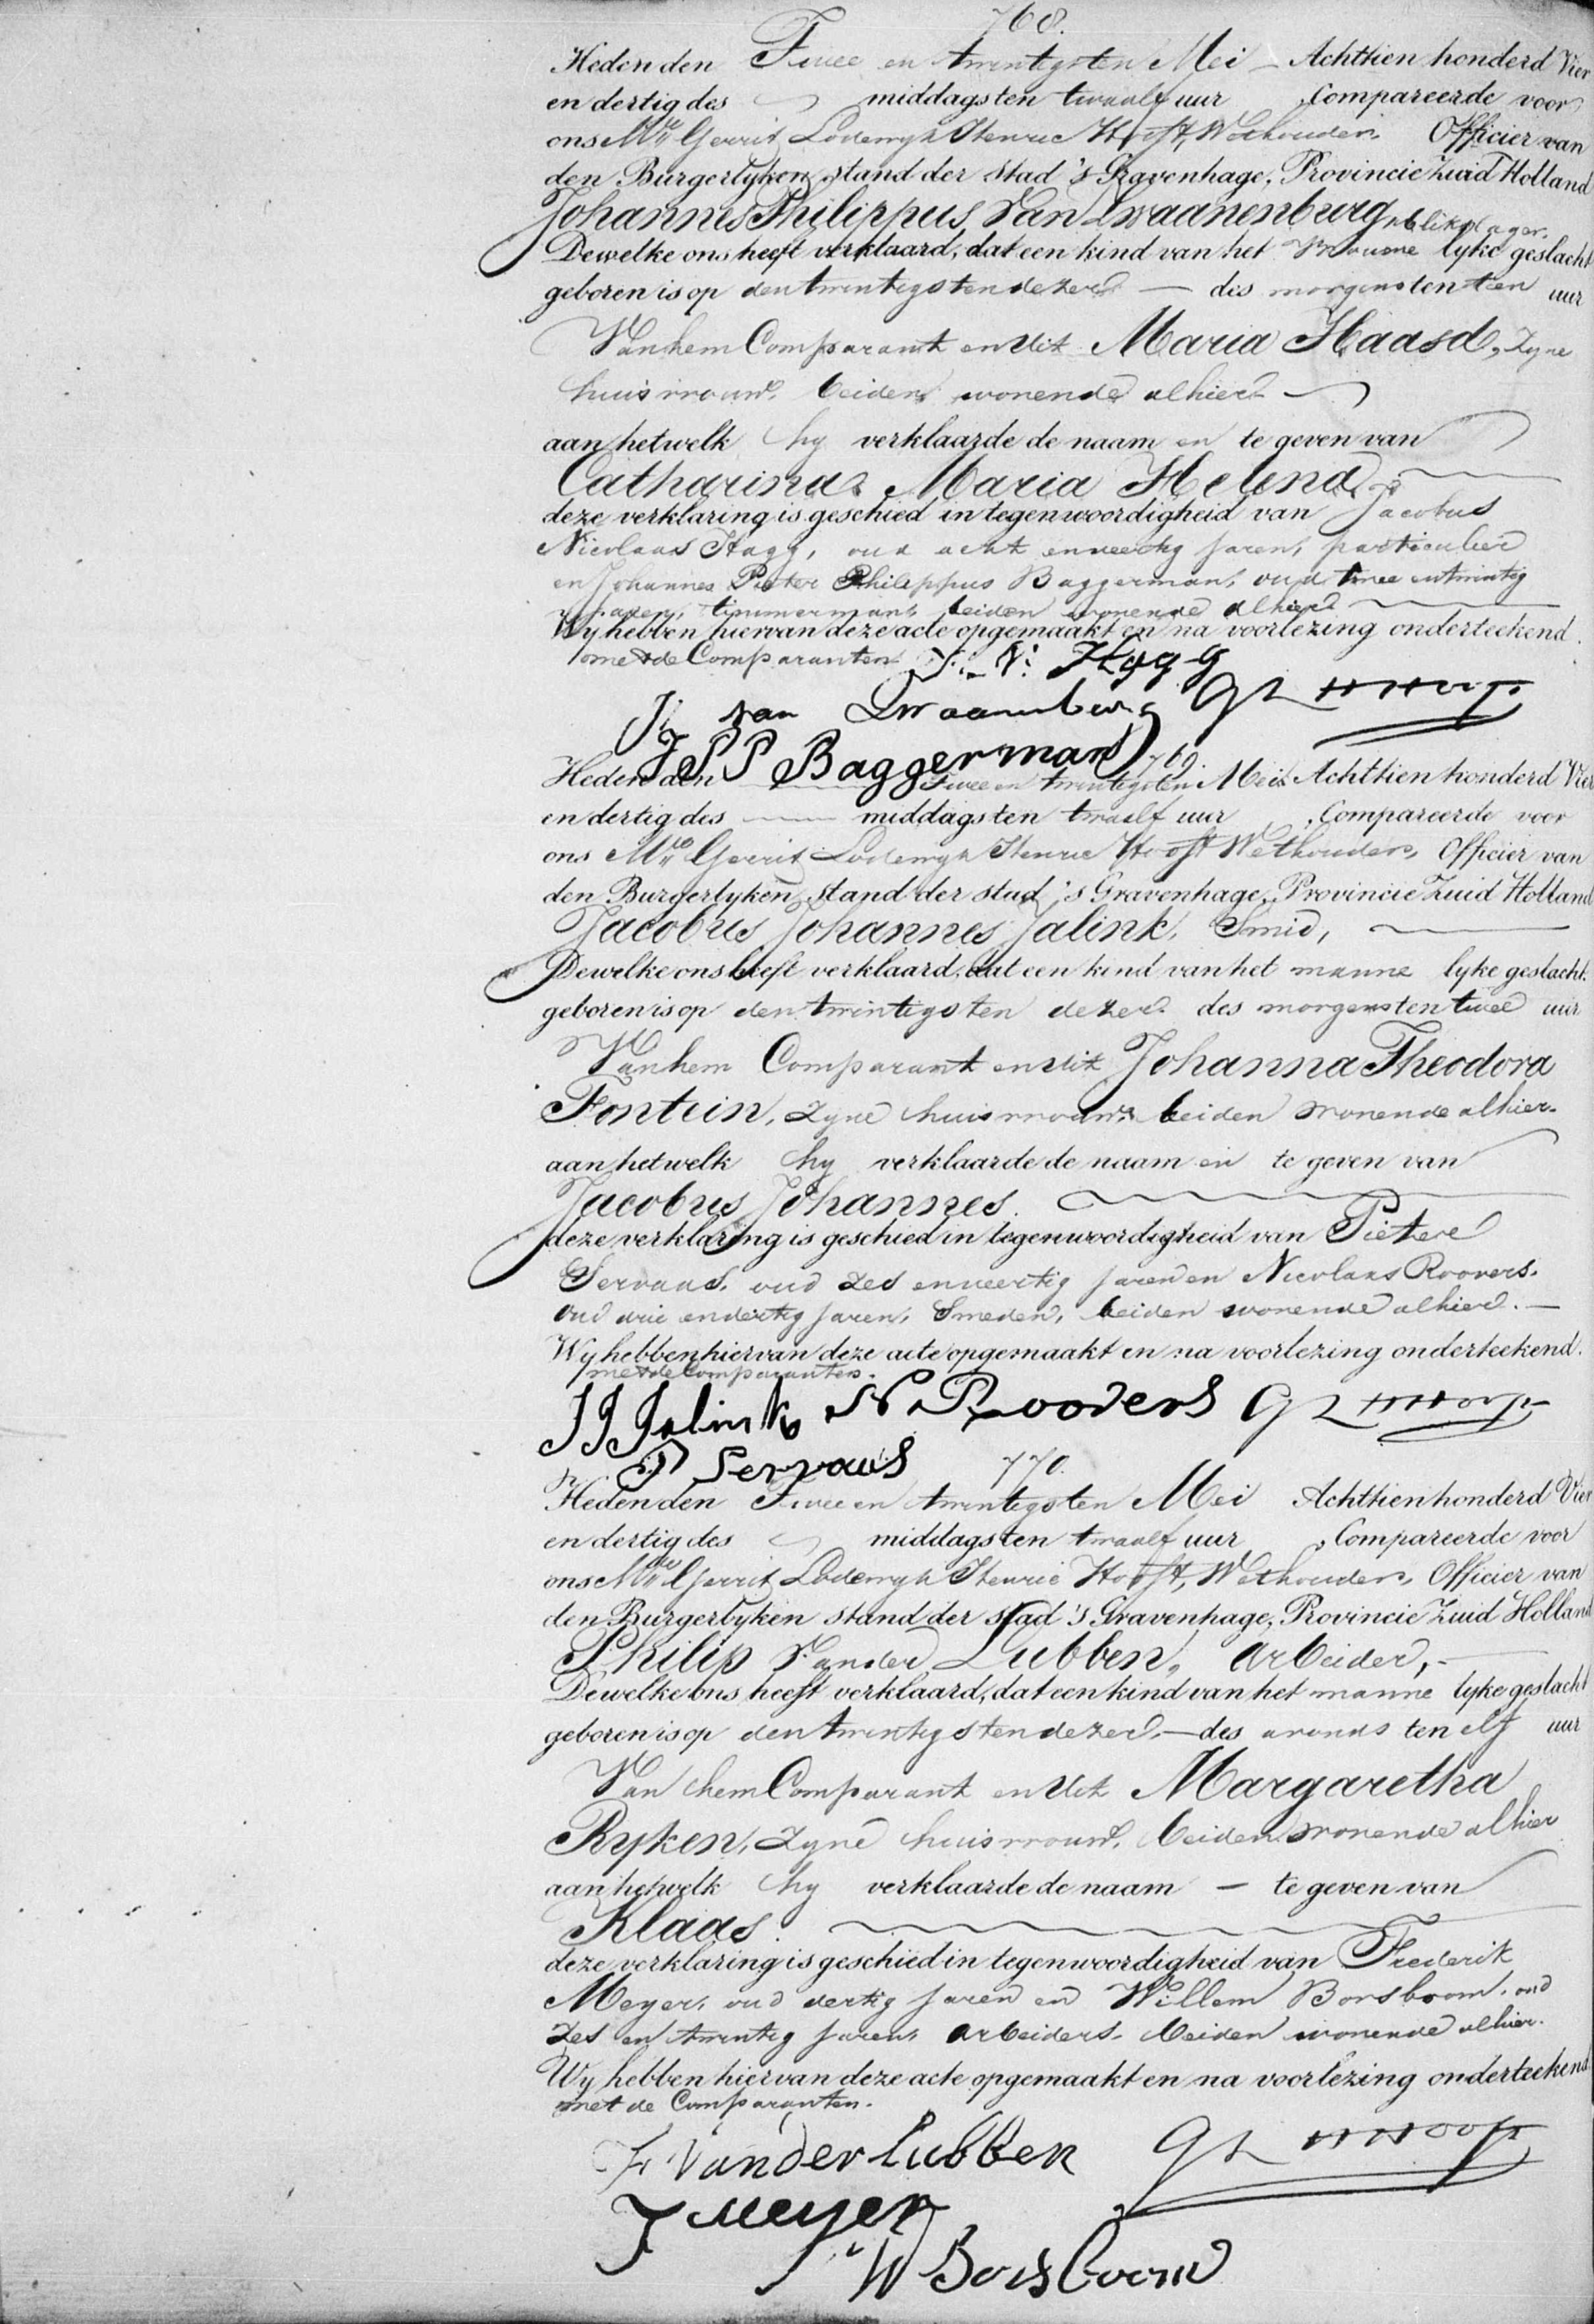 768.
Heden den Twee en twintigsten Mei – Achttien honderd Vier
en dertig des middags ten twaalf uur, Compareerde voor
ons Mr. Gerrit Lodewyk Henric Hooft, Wethouder, Officier van
den Burgerlyken stand der stad 's Gravenhage, Provincie Zuid Holland
Johannes Philippus van Swaanenburg, blikslager.
Dewelke ons heeft verklaard, dat een kind van het Vrouwe lyke geslacht
geboren is op den twintigsten dezer – des morgens ten tien uur
Van hem Comparant en uit Maria Haasd, Zyne
huisvrouw, beiden wonende alhier
aan hetwelk hy verklaarde de naam en te geven van
Catharina Maria Helena.
deze verklaring is geschied in tegenwoordigheid van Jacobus
Nicolaas Hagg, oud acht en veertig jaren, particulier
en Johannes Pieter Philippus Baggerman, oud twee en twintig
jaren, timmerman, beiden wonende alhier
Wy hebben hiervan deze acte opgemaakt en na voorlezing onderteekend.
met de Comparanten J. N. Hagg
J. van Swaanenburg GLHHooft
J P P Baggerman 769.
Heden den Twee en twintigsten Mei Achttien honderd Vier
en dertig des middags ten twaalf uur, Compareerde voor
ons Mr. Gerrit Lodewyk Henric Hooft Wethouder, Officier van
den Burgerlyken stand der stad 's Gravenhage, Provincie Zuid Holland
Jacobus Johannes Jalink, Smid,
Dewelke ons heeft verklaard, dat een kind van het manne lyke geslacht.
geboren is op den twintigsten dezer des morgens ten twee uur
Van hem Comparant en uit Johanna Theodora
Fontein, Zyne huisvrouw, beiden wonende alhier.
aan hetwelk hy verklaarde de naam en te geven van
Jacobus Johannes.
deze verklaring is geschied in tegenwoordigheid van Pieter
Servaas, oud zes en veertig jaren en Nicolaas Roovers.
oud drie en dertig jaren, Smeden, beiden wonende alhier. –
Wy hebben hiervan deze acte opgemaakt en na voorlezing onderteekend.
met de Comparanten.
J J Jalink N Roovers GLHHooft
P Servaas 770.
Heden den Twee en twintigsten Mei Achttien honderd Vier
en dertig des middags ten twaalf uur, Compareerde voor
ons Mr. Gerrit Lodewyk Henric Hooft, Wethouder, Officier van
den Burgerlyken stand der stad 's Gravenhage, Provincie Zuid Holland
Philip Van der Lubben, arbeider, –
Dewelke ons heeft verklaard, dat een kind van het manne lyke geslacht
geboren is op den twintigsten dezer – des avonds ten elf uur
Van hem Comparant en uit Margaretha
Ryken, Zyne huisvrouw, beiden wonende alhier
aan hetwelk hy verklaarde de naam – te geven van
Klaas.
deze verklaring is geschied in tegenwoordigheid van Frederik
Meyer, oud dertig jaren en Willem Borsboom, oud
zes en twintig jaren, arbeiders, beiden wonende alhier.
Wy hebben hiervan deze acte opgemaakt en na voorlezing onderteekend
met de Comparanten.
F Van der Lubben GLHHooft
F Meyer
W Borsboom